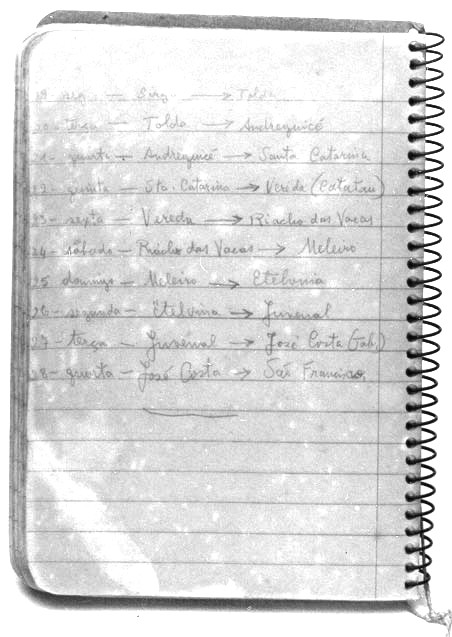 19 seg — Sirg → Tolda
20 - terça — Tolda → Andrequicé
21 - quarta - Andrequicé → Santa Catarina
22 - quinta — Sta. Catarina → Vereda (Catatau)
23 - sexta — Vereda → Riacho das Vacas
24 - sábado — Riacho das Vacas → Meleiro
25 domingo — Meleiro → Etelvina
26 - segunda — Etelvina → Juvenal
27 - terça — Juvenal → José Costa (Tab.)
28 - quarta — José Costa → São Francisco.